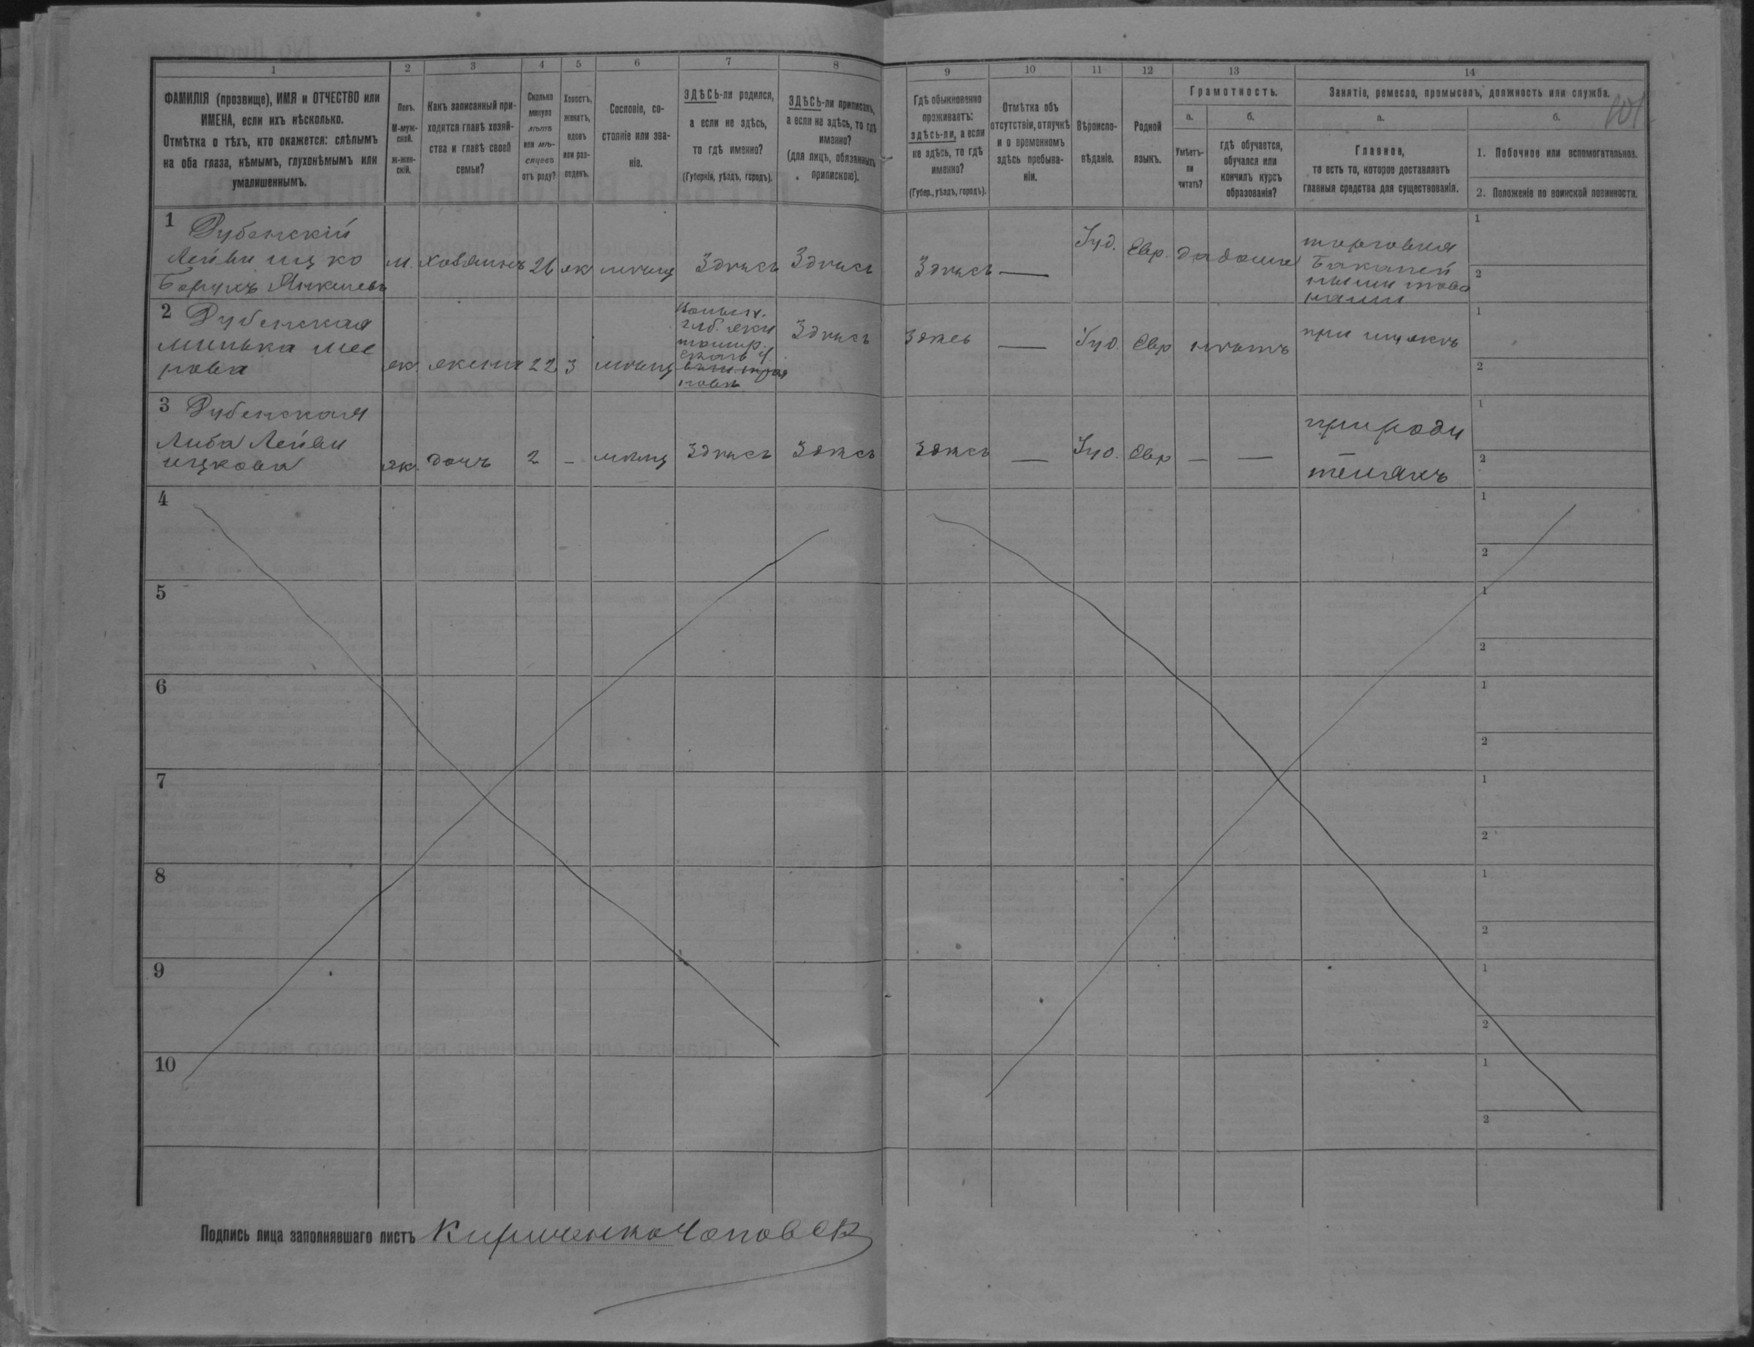 1 2 3 4 5 6 7 8 9 10 11 12 13 14
ФАМИЛІЯ (прозвище), ИМЯ и ОТЧЕСТВО или
ИМЕНА, если ихъ нѣсколько.
Отмѣтка о тѣхъ, кто окажется: слѣпымъ
на оба глаза, нѣмымъ, глухонѣмымъ или
умалишеннымъ.
Полъ.
М-муж-
ской.
Ж-жен-
скій.
Какъ записанный при-
ходится главѣ хозяй-
ства и главѣ своей
семьи?
Сколько
минуло
лѣтъ
или мѣ-
сяцевъ
отъ роду?
Холостъ,
женатъ,
вдовъ
или раз-
веденъ.
Сословіе, со-
стояніе или зва-
ніе.
ЗДѢСЬ-ли родился,
а если не здѣсь,
то гдѣ именно?
(Губернія, уѣздъ, городъ).
ЗДѢСЬ-ли приписанъ,
а если не здѣсь, то гдѣ
именно?
(для лицъ, обязанныхъ
припискою).
Гдѣ обыкновенно
проживаетъ:
здѣсь-ли, а если
не здѣсь, то гдѣ
именно?
(Губер., уѣздъ, городъ).
Отмѣтка объ
отсутствіи, отлучкѣ
и о временномъ
здѣсь пребыва-
ніи.
Вѣроиспо-
вѣданіе.
Родной
языкъ.
Грамотность.
а.
Умѣетъ-
ли
читать?
б.
гдѣ обучается,
обучался или
кончилъ курсъ
образованія?
Занятіе, ремесло, промыселъ, должность или служба.
а.
Главное,
то есть то, которое доставляетъ
главныя средства для существованія.
б.
1. Побочное или вспомогательное.
2. Положеніе по воинской повинности.
1 Дубенскій
Лейви ицко
Борухъ Янкелевъ
м. хозяинъ 26 ж мѣщ Здѣсь Здѣсь Здѣсь — Іуд. Евр. да дома
торговля
бакалей
ными това
рами
1
2
2 Дубенская
Минька Мее
рова
ж. жена 22 з мѣщ
Здѣсь Здѣсь — Іуд. Евр нѣтъ при мужѣ
1
2
3 Дубенская
Либа Лейви
ицкова
ж. дочь 2 – мѣщ Здѣсь Здѣсь Здѣсь — Іуд. Евр — —
при роди
теляхъ
1
2
4
1
2
5
1
2
6
1
2
7
1
2
8
1
2
9
1
2
10
1
2
Подпись лица заполнявшаго листъ